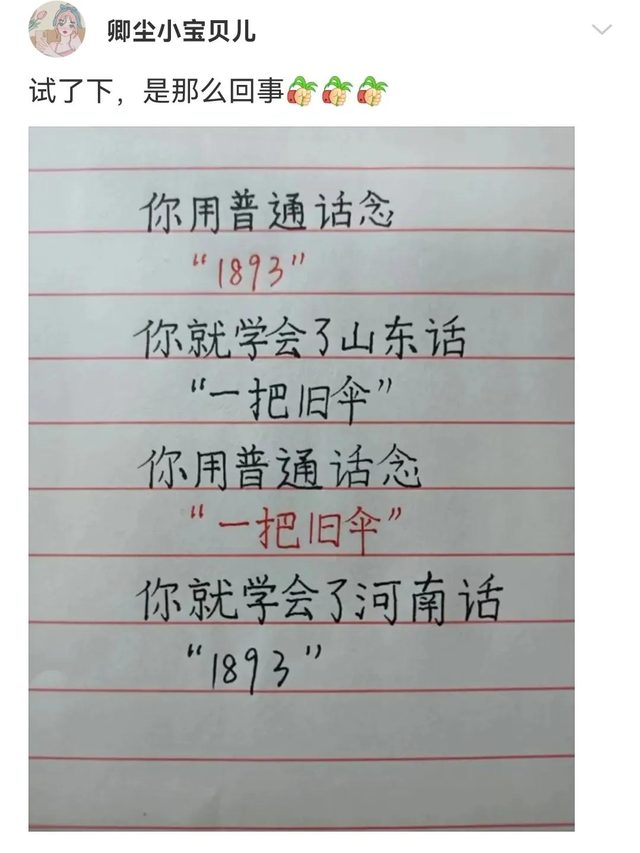 卿尘小宝贝儿
试了下，是那么回事
你用普通话念
“1893”
你就学会了山东话
“一把旧伞”
你用普通话念
“一把旧伞”
你就学会了河南话
“1893”